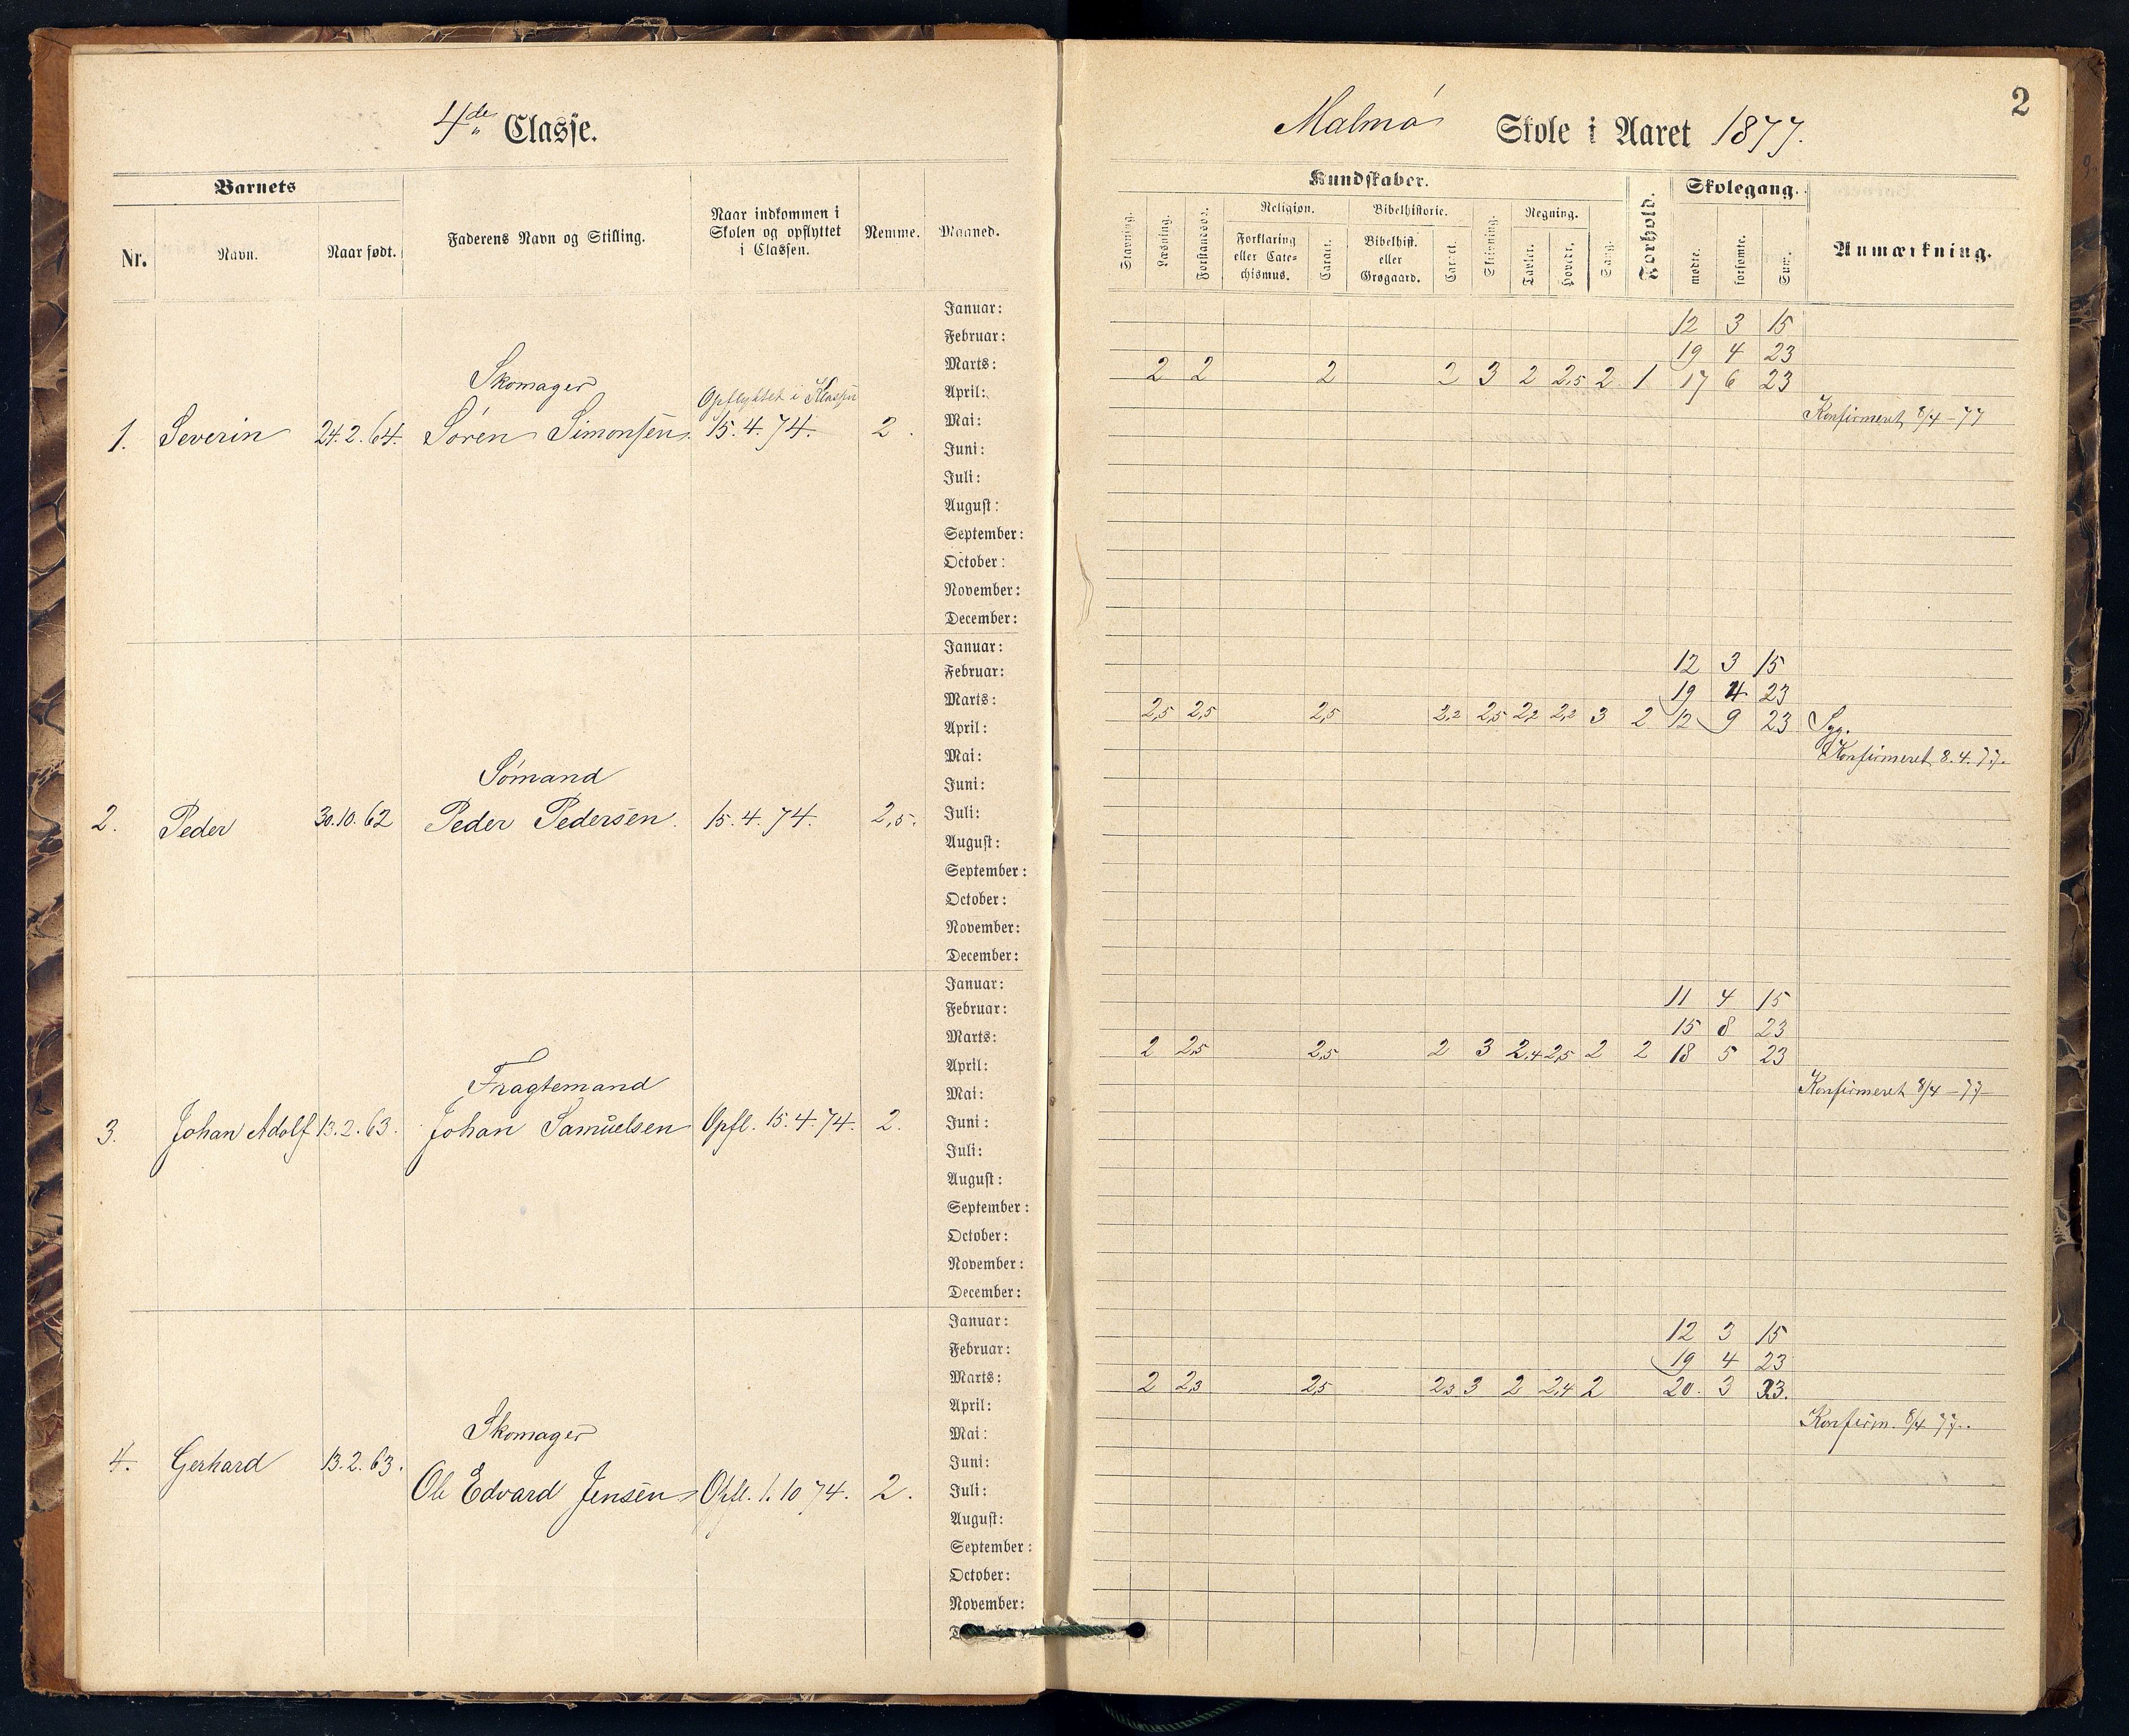 4de Classe.
Barnets
Nr.
Navn.
Naar født.
Faderens Navn og Stilling.
Naar indkommen i
Skolen og opflyttet
i Classen.
Nemme.
Maaned.
Januar:
Februar:
Marts:
April:
Mai:
Juni:
Juli:
August:
September:
October:
November:
December:
Skomager
Opflyttet i Klassen
1. Severin 24.2.64. Sören Simonsen. 15.4.74. 2.
Januar:
Februar:
Marts:
April:
Mai:
Juni:
Juli:
August:
September:
October:
November:
December:
Sömand
2. Peder 30.10.62 Peder Pedersen. 15.4.74. 2,5.
Januar:
Februar:
Marts:
April:
Mai:
Juni:
Juli:
August:
September:
October:
November:
December:
Fragtemand
3. Johan Adolf 13.2.63. Johan Samuelsen Opfl. 15.4.74. 2.
Januar:
Februar:
Marts:
April:
Mai:
Juni:
Juli:
August:
September:
October:
November:
Skomager
4. Gerhard 13.2.63.
Ole Edvard Jensen Opfl. 1.10 74. 2.
2
Malmö Skole i Aaret 1877.
Kundskaber.
Forhold.
Skolegang.
Anmærkning.
Stavning.
Læsning.
Forstandsøv.
Religion.
Forklaring
eller Cate-
chismus.
Caract.
Bibelhistorie.
Bibelhist.
eller
Grøgaard.
Caract.
Skrivning.
Regning.
Tavler.
Hovedr.
Sang.
mødte.
forsømte.
Sum.
12 3 15
19 4 23
2 2 2 2 3 2 2,5 2 1 17 6 23
Konfirmeret 8/4-77
12 3 15
19 4 23
2,5 2,5 2,5 2,2 2,5 2,2 2,2 3 2 12 9 23 Syg.
Konfirmeret 8.4.77.
11 4 15
15 8 23
2 2,5 2,5 2 3 2,4 2,5 2 2 18 5 23
Konfirmeret 8/4-77
12 3 15
19 4 23
2 2,3 2,5 2,3 3 2 2,4 2 20. 3 23.
Konfirm. 8/4 77.